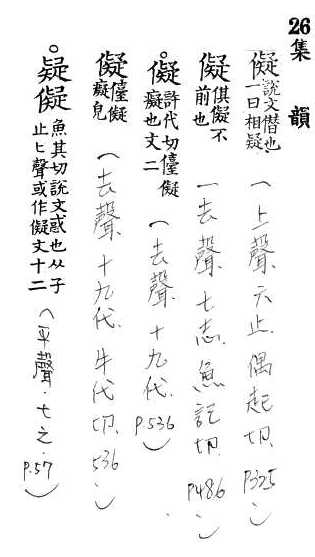 26 集韻
儗 說文僭也一曰相疑(上聲.六止.偶起切.P325)
儗 儗儗不前也(去聲.七志.魚記切.P486)
。儗 許代切儓儗癡也文二(去聲.十九代.P.536)
儗 儓儗癡皃(去聲.十九代.牛代切.536)
。疑儗 魚其切說文惑也从子止匕聲或作儗文十二(平聲.七之.P.57)